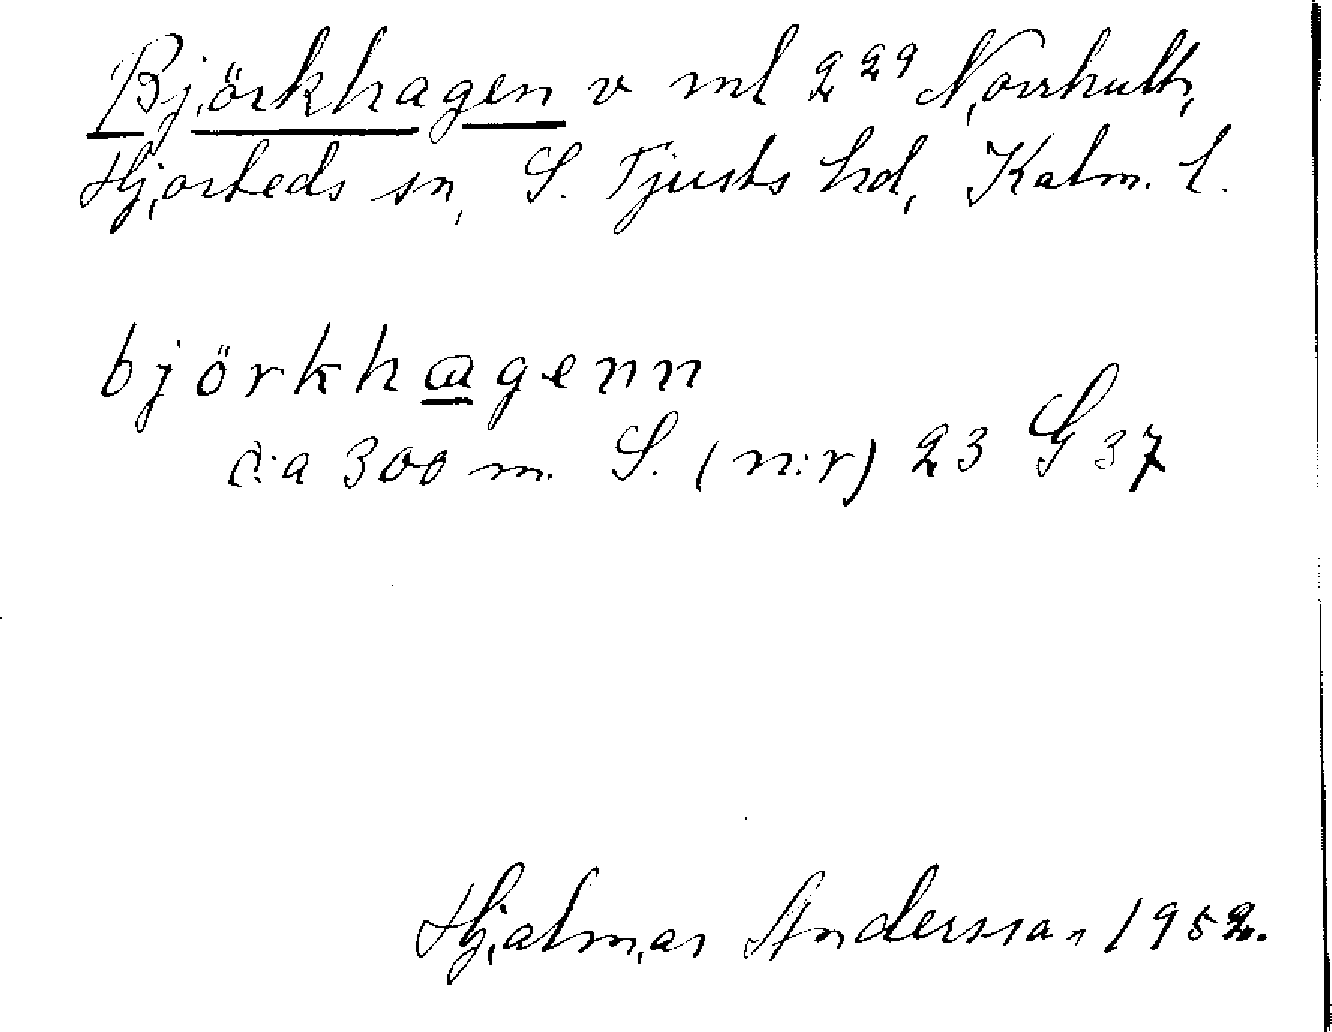 Björkhagen v ml 2²⁹ Norrhult,
Hjorteds sn, S. Tjusts hd, Kalm. l.
björkhagenn
c:a 300 m. S. (n:r) 23 G 37
Hjalmar Andersson 1952.